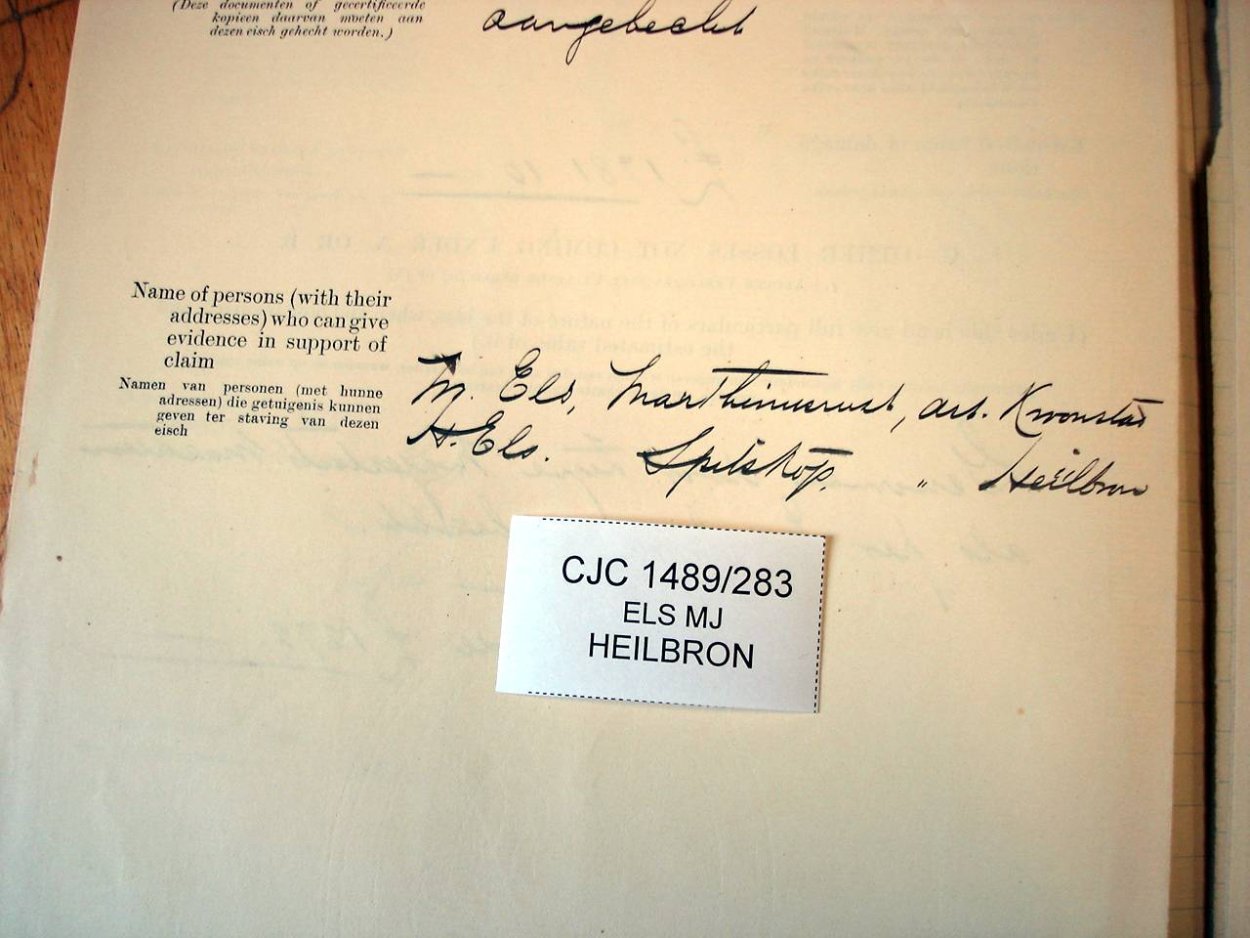 (Deze documenten of gecertificeerde
kopieen daarvan moeten aan
dezen eisch gehecht worden.)
aangehecht
Name of persons (with their
addresses) who can give
evidence in support of
claim
Namen van personen (met hunne
adressen) die getuigenis kunnen
geven ter staving van dezen
eisch
M. Els, Marthinusrust, dist. Kroonstad
H. Els. Spitskop, " Heilbron
CJC 1489/283
ELS MJ
HEILBRON